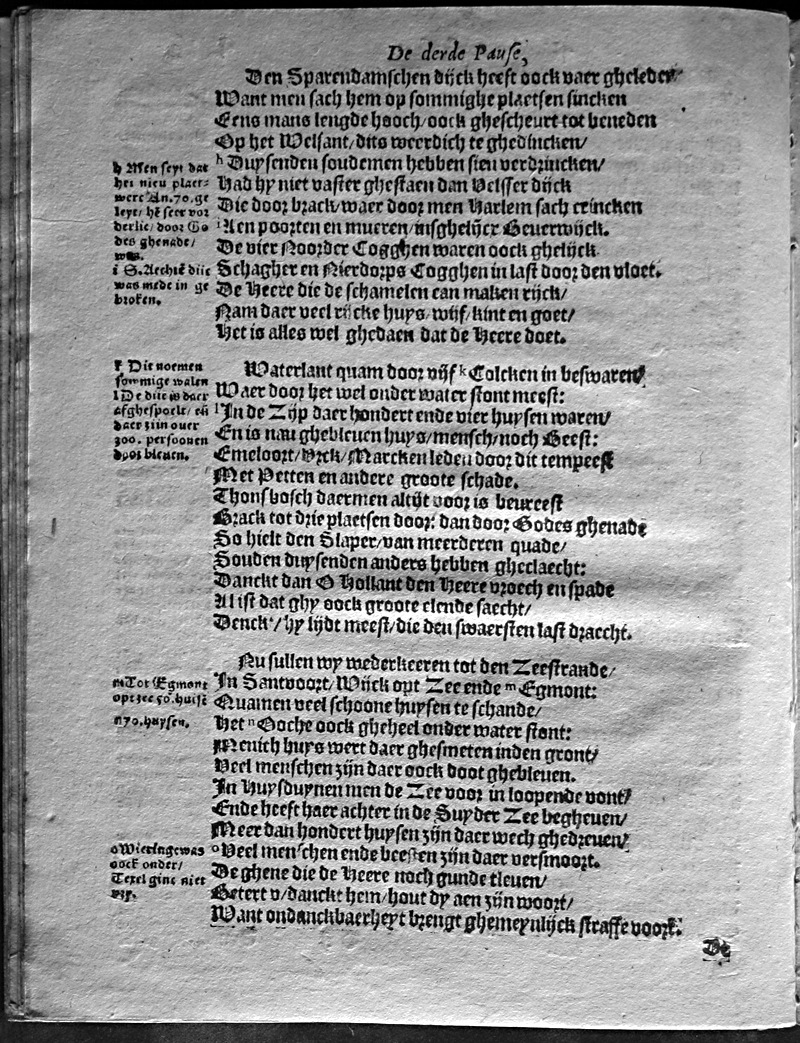 De derde Pause,
Den Sparendamschen dijck heeft oock vaer gheleden
Want men sach hem op sommighe plaetsen sincken
Eens mans lengde hooch/ oock ghescheurt tot beneden
Op het Welsant/ dits weerdich te ghedincken/
h Duysenden soudemen hebben sien verdrincken/
Had hy niet vaster ghestaen dan Velsser dijck
Die door brack/ waer door men Harlem sach crincken
i Aen poorten en mueren/ insghelijcx Beverwijck.
De vier Noorder Cogghen waren oock ghelijck
Schagher en Nierdorps Cogghen in last door den vloet.
De Heere die de schamelen can maken rijck/
Nam daer veel rijcke huys/ wijf/ kint en goet/
Het is alles wel ghedaen dat de Heere doet.
h Men seyt dat
het nieu plaet-
were An. 70. ge
leyt/ hẽ seer vor
derlic/ door Go
des ghenade/
was.
i S. Aechtẽ dijc
was mede in ge
broken.
Waterlant quam door vijf k Colcken in beswaren/
Waer door het wel onder water stont meest:
l In de Zijp daer hondert ende vier huysen waren/
En is nau ghebleuen huys/ mensch/ noch Beest:
Emeloort/ Vrck/ Marcken leden door dit tempeest
Met Petten en andere groote schade.
Thonsbosch daermen altijt voor is beureest
Brack tot drie plaetsen door: dan door Godes ghenade
So hielt den Slaper/ van meerderen quade/
Souden duysenden anders hebben gheclaecht:
Danckt dan O Hollant den Heere vroech en spade
Al ist dat ghy oock groote elende saecht/
Denck'/ hy lijdt meest/ die den swaersten last draecht.
k Die noemen
sommige walen
l De dijc is daer
afghespoelt/ eñ
daer zijn ouer
300. persoonen
door bleuen.
Nu sullen wy wederkeeren tot den Zeestrande/
In Santvoort/ Wijck opt Zee ende m Egmont:
Quamen veel schoone huysen te schande/
Het n Ooche oock gheheel onder water stont:
Menich huys wert daer ghesmeten inden gront/
Veel menschen zijn daer oock doot ghebleuen.
In Huysduynen men de Zee voor in loopende vont/
Ende heeft haer achter in de Suyder Zee begheuen/
Meer dan hondert huysen zijn daer wech ghedreuen/
o Veel menschen ende beesten zijn daer versmoort.
De ghene die de Heere noch gunde tleuen/
Betert v/ danckt hem/ hout dy aen zijn woort/
Want ondanckbaerheyt brengt ghemeynlijck straffe voort.
m Tot Egmont
opt zee 50. huisẽ
n 70. huysen.
o Wieringe was
oock onder/
Texel ginc niet
vry.
De